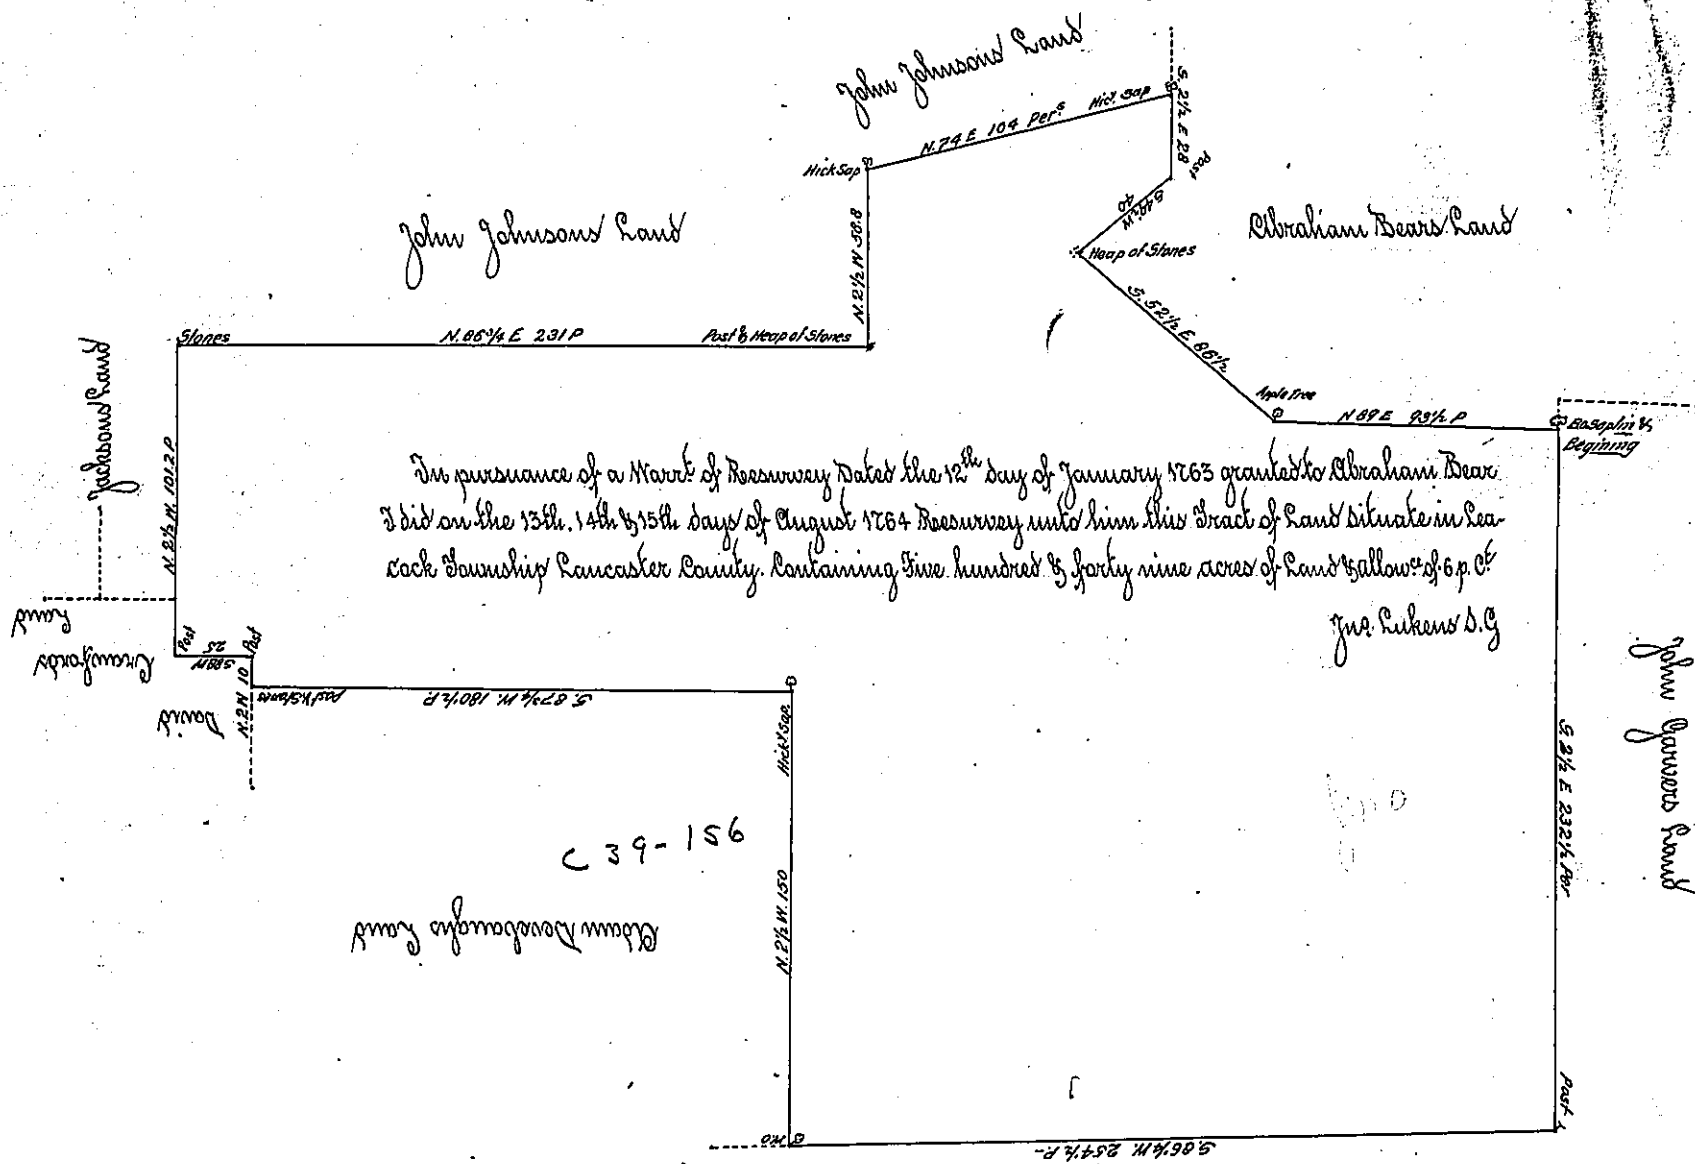 John Johnsons Land
S. 2½ E 28
Hic. Sap
N. 74 E 104 Pers
Hick Sap
Post
S 49½ W
40
John Johnsons Land
N. 2½ W 58.8
Abraham Bears Land
Heap of Stones
S. 52½ E 86½
Stones
N. 86¾ E 231 P
Post & Heap of Stones
Jacksons Land
Apple Tree
N 89 E 93½ P
Begining
N. 2½ W. 101.2 P
In pursuance of a Warrt. of Reesurvey Dated the 12th day of January 1763 granted to Abraham Bear
I did on the 13th. 14th & 15th days of August 1764 Reesurvey unto him this Tract of Land Situate in Lea-
cock Township Lancaster County. Containing Five hundred & forty nine acres of Land & allowce of 6 p. Ct
Jno. Lukens S. G
David
Crawfords
Land
Post
S88W
25
Post
N. 2 W 10
Post & Stones
S. 87¾ W. 180½ P.
Hick. Sap.
John Garvers Land
S. 2½ E 232½ Per
C 39-156
Adam Land
N. 2½ W. 150
Post
WO
S. 86¼ W. 254½ P.